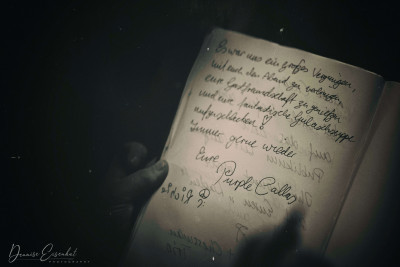 Es war uns ein großes Vergnügen,
mit euch den Abend zu verbringen,
eure Gastfreundschaft zu genießen
und eure fantastische Gulaschsuppe
aufzuschlecken!
Immer gerne wieder
Eure
Purple Callas
Denise Eisenhut
PHOTOGRAPHY